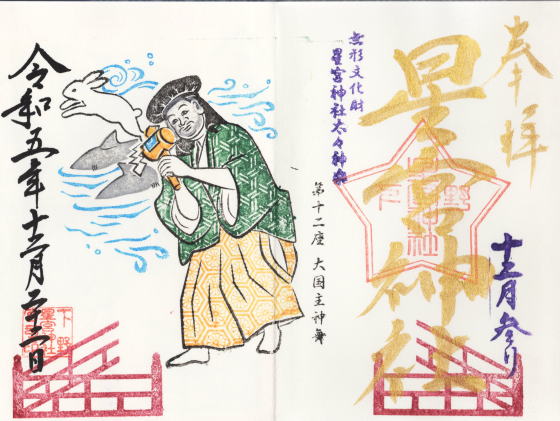 奉拝
星宮神社
十二月参り
無形文化財
星宮神社太々神楽
第十二座 大国主神舞
令和五年十二月二十二日
下野